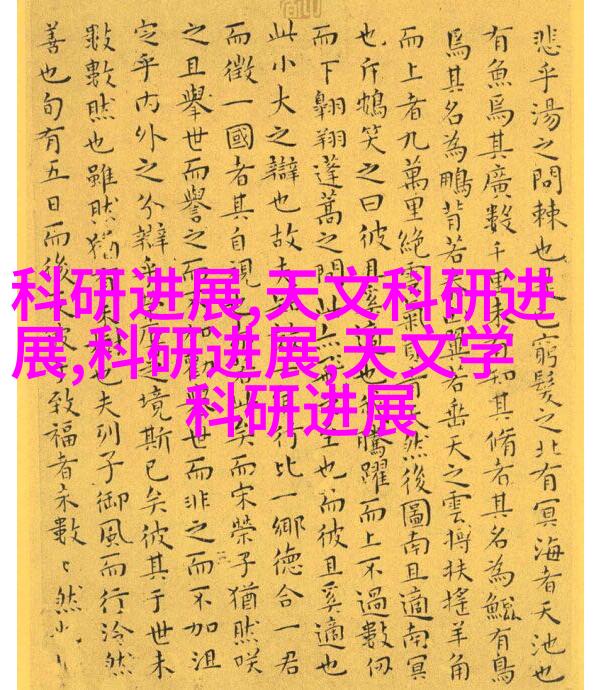 科研进展,天文科研进
展,科研进展,天文学
科研进展
悲乎湯之問棘也 窮髮之北有冥海者天池也
有魚焉其廣數千里未 知其脩者其名為鯤有鳥
焉其名為鵬背若 翼若垂天之雲摶扶搖羊角
而上者九萬里絕雲氣 天然後圖南且適南冥
也斥鴳笑之曰彼且奚適也 騰躍而上不過數仞
而下翱翔蓬蒿之間此 至也而彼且奚適也
此小大之辯也故夫 行比一鄉德合一君
而徵一國者其自視也 若此矣而宋榮子猶然咲
之且舉世而譽之而 加勸舉世而非之而不加沮
定乎內外之分辯乎 辱之境斯已矣彼其于世未
數數然也雖然猶有未樹也夫列子御風而行泠然
善也旬有五日而後 致福者未數〻然